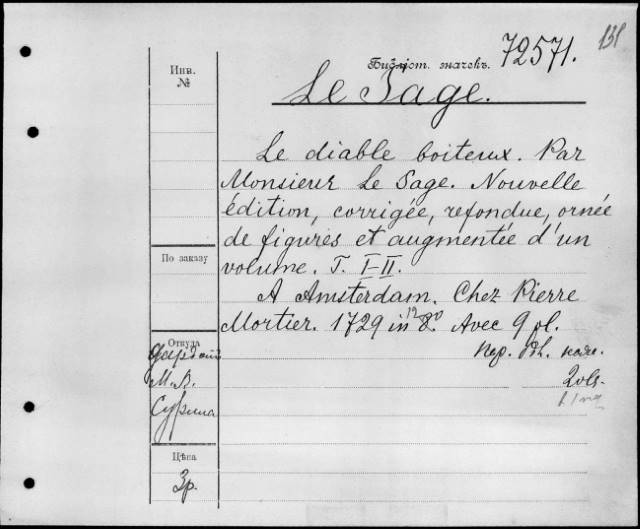 131
72571.
Инв. №
Библіот. значекъ.
Le Sage.
Le diable boiteux. Par
Monsieur Le Sage. Nouvelle
édition, corrigée, refondue, ornée
de figures et augmentée d'un
volume. T. I-II.
По заказу
A Amsterdam. Chez Pierre
Mortier. 1729 in 12° 8°. Avec 9 pl.
Откуда
М. В.
2 vls.
Цѣна
3р.